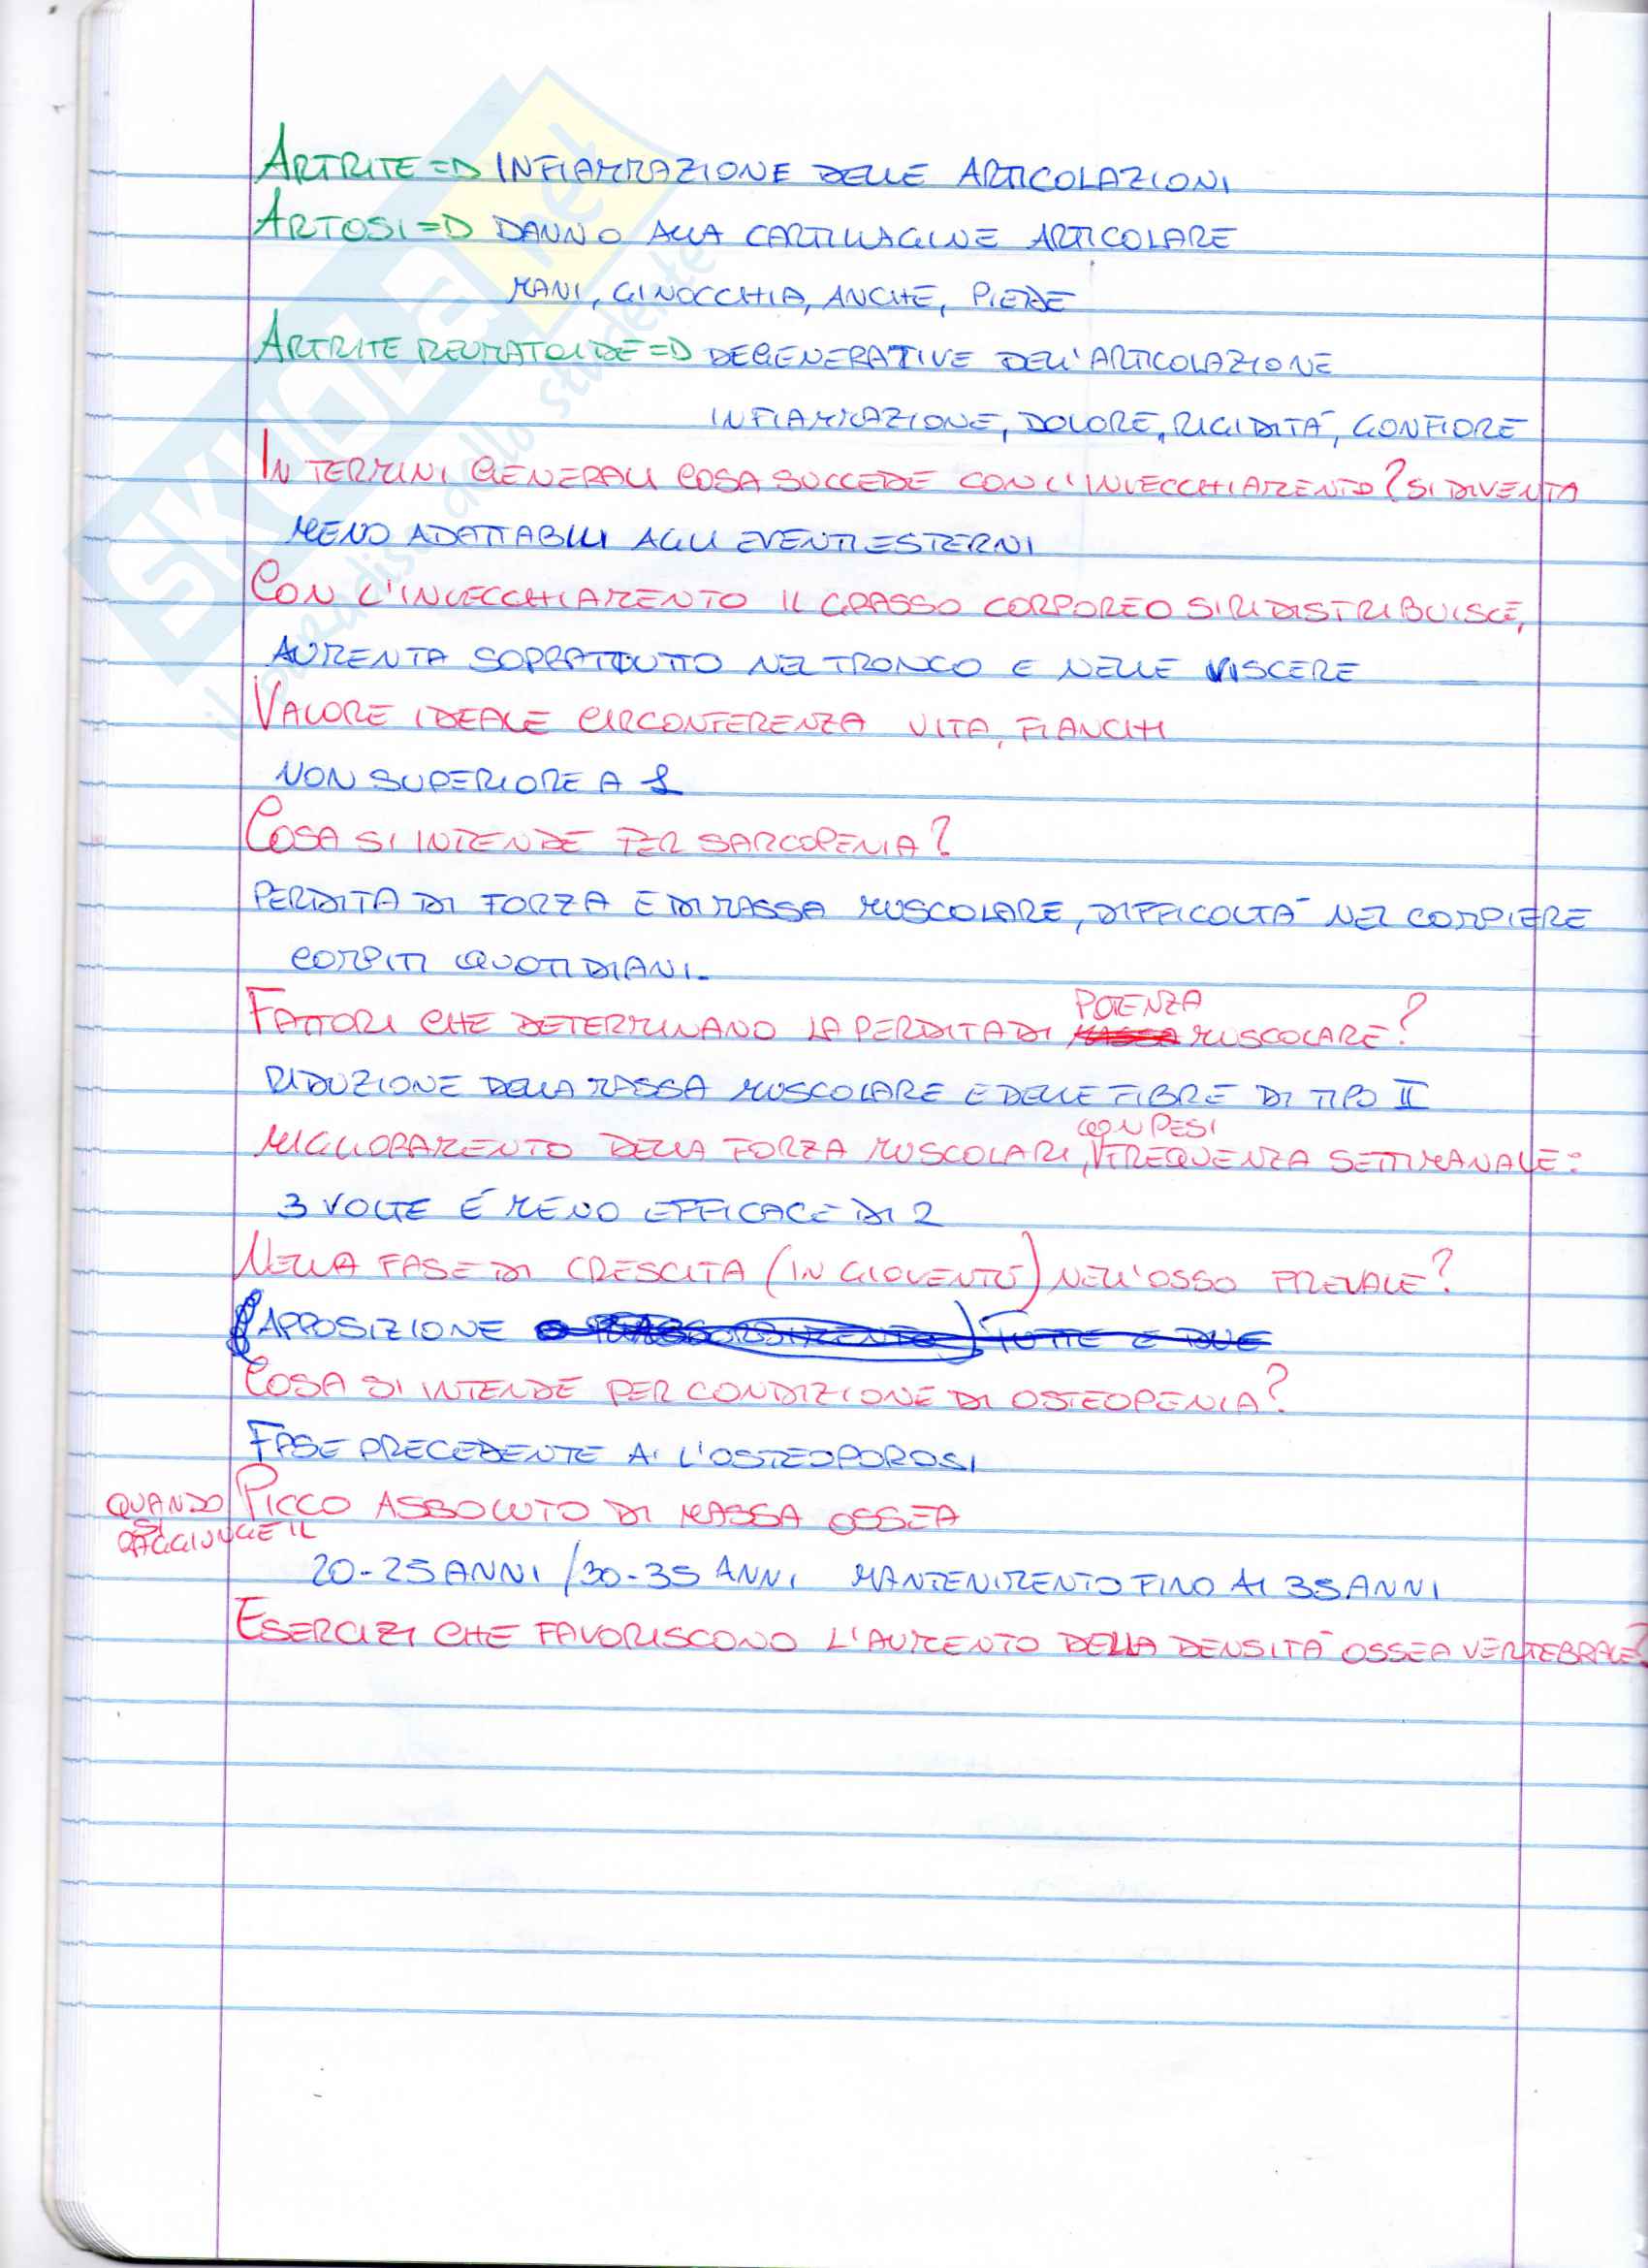 ARTRITE => INFIAMMAZIONE DELLE ARTICOLAZIONI
ARTOSI => DANNO ALLA CARTILLAGINE ARTICOLARE
MANI, GINOCCHIA, ANCHE, PIEDE
ARTRITE REUMATOIDE => DEGENERATIVE DELL'ARTICOLAZIONE
INFIAMMAZIONE, DOLORE, RIGIDITÀ, GONFIORE
IN TERMINI GENERALI COSA SUCCEDE CON L'INVECCHIAMENTO? SI DIVENTA
MENO ADATTABILI AGLI EVENTI ESTERNI
CON L'INVECCHIAMENTO IL GRASSO CORPOREO SI RIDISTRIBUISCE,
AUMENTA SOPRATTUTTO NEL TRONCO E NELLE VISCERE
VALORE IDEALE CIRCONFERENZA VITA, FIANCHI
NON SUPERIORE A 1
COSA SI INTENDE PER SARCOPENIA?
PERDITA DI FORZA E DI MASSA MUSCOLARE, DIFFICOLTÀ NEL COMPIERE
COMPITI QUOTIDIANI.
POTENZA
FATTORI CHE DETERMINANO LA PERDITA DI MASSA MUSCOLARE?
RIDUZIONE DELLA MASSA MUSCOLARE E DELLE FIBRE DI TIPO II
CON PESI
MIGLIORAMENTO DELLA FORZA MUSCOLARI, FREQUENZA SETTIMANALE:
3 VOLTE É MENO EFFICACE DI 2
NELLA FASE DI CRESCITA (IN GIOVENTÙ) NELL'OSSO PREVALE?
APPOSIZIONE O RIASSORBIMENTO TUTTE E DUE
COSA SI INTENDE PER CONDIZIONE DI OSTEOPENIA?
FASE PRECEDENTE AL L'OSTEOPOROSI
QUANDO SI RAGGIUNGE IL PICCO ASSOLUTO DI MASSA OSSEA
20-25 ANNI / 30-35 ANNI MANTENIMENTO FINO AI 35 ANNI
ESERCIZI CHE FAVORISCONO L'AUMENTO DELLA DENSITÀ OSSEA VERTEBRALE?
SKUOLA.net
il paradiso dello studente